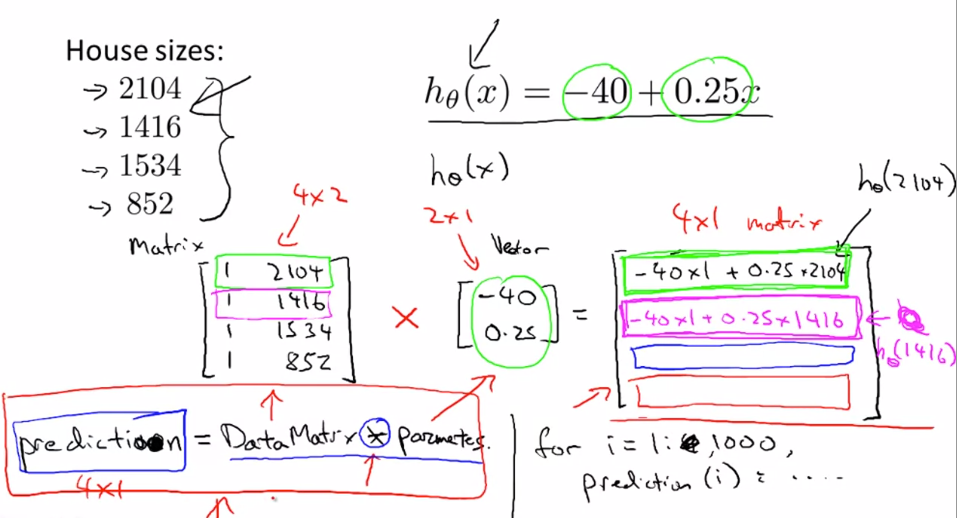 House sizes:
→ 2104
→ 1416
→ 1534
→ 852
hθ(x) = −40 + 0.25x
hθ(x)
hθ(2104)
4×2
2×1
4×1 matrix
Matrix
Vector
1 2104
1 1416
1 1534
1 852
×
-40
0.25
=
-40×1 + 0.25×2104
-40×1 + 0.25×1416
hθ(1416)
prediction = DataMatrix * parametes.
4×1
for i = 1:1000,
prediction(i) = .....